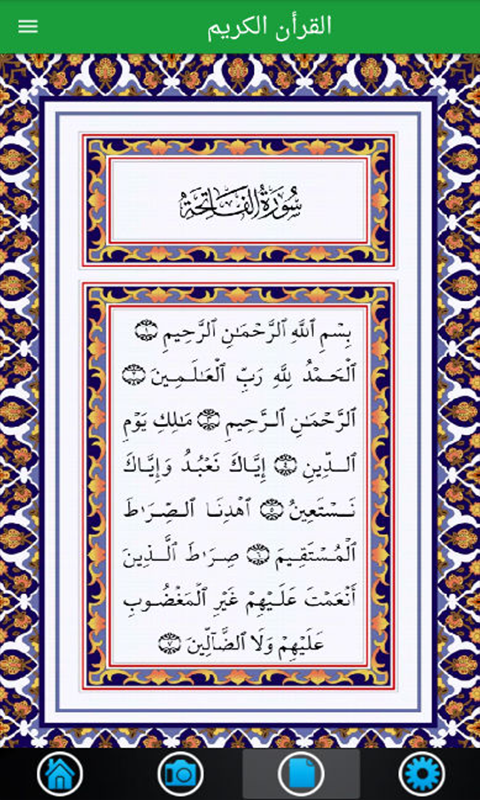 القرأن الكريم
سُورَةُ الفَاتِحَةِ
بِسْمِ ٱللَّهِ ٱلرَّحْمَـٰنِ ٱلرَّحِيمِ ١
ٱلْحَمْدُ لِلَّهِ رَبِّ ٱلْعَـٰلَمِينَ ٢
ٱلرَّحْمَـٰنِ ٱلرَّحِيمِ ٣ مَـٰلِكِ يَوْمِ
ٱلدِّينِ ٤ إِيَّاكَ نَعْبُدُ وَإِيَّاكَ
نَسْتَعِينُ ٥ ٱهْدِنَا ٱلصِّرَٰطَ
ٱلْمُسْتَقِيمَ ٦ صِرَٰطَ ٱلَّذِينَ
أَنْعَمْتَ عَلَيْهِمْ غَيْرِ ٱلْمَغْضُوبِ
عَلَيْهِمْ وَلَا ٱلضَّآلِّينَ ٧